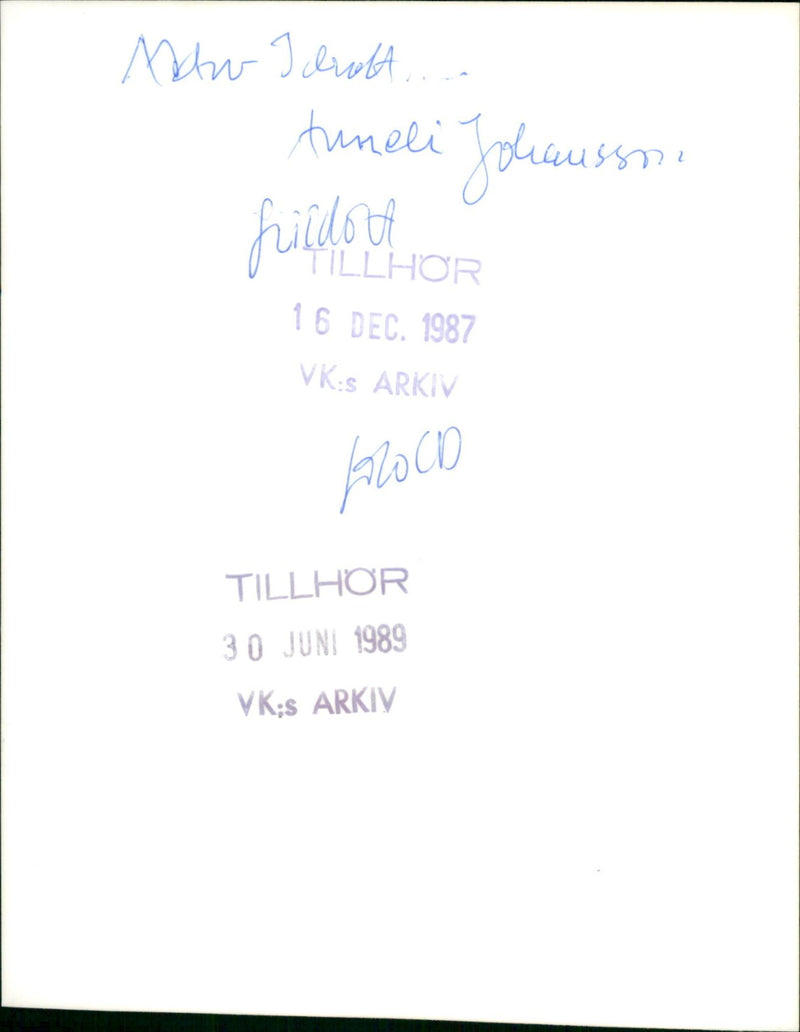 Idrott....
Anneli Johansson.
friidott
TILLHÖR
16 DEC. 1987
VK:s ARKIV
TILLHÖR
30 JUNI 1989
VK;s ARKIV